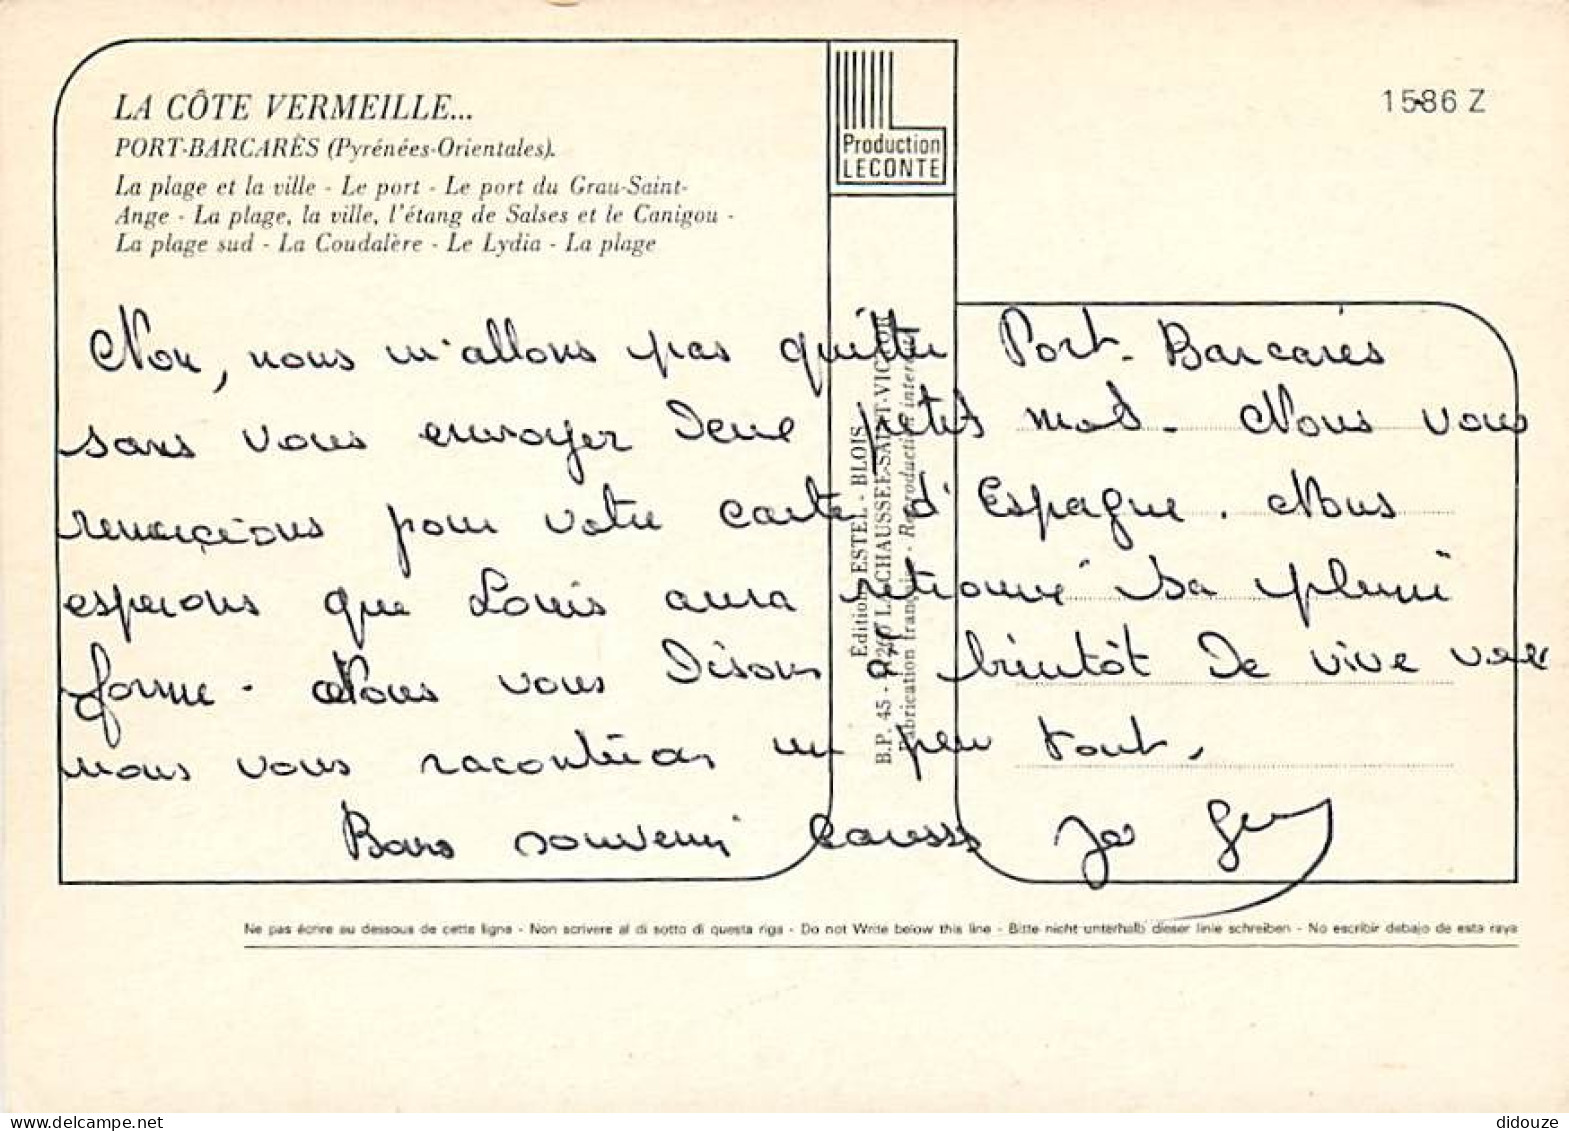 LA CÔTE VERMEILLE...
PORT-BARCARÈS (Pyrénées-Orientales).
La plage et la ville - Le port - Le port du Grau-Saint-
Ange - La plage, la ville, l'étang de Salses et le Canigou -
La plage sud - La Coudalère - Le Lydia - La plage
Production
LECONTE
1586 Z
Éditions ESTEL - BLOIS
B.P. 45 - LA CHAUSSEE-SAINT-VICTOR
Fabrication française - Reproduction
Non, nous n'allons pas quitter Port-Barcarès
sans vous envoyer deux petits mots. Nous vous
remercions pour votre carte d'Espagne. Nous
esperons que Louis aura retrouvé sa pleine
forme. Nous vous disons à bientôt de vive voix
nous vous raconterons un peu tout.
Bons souvenirs Jo
Ne pas écrire au dessous de cette ligne - Non scrivere al di sotto di questa riga - Do not Write below this line - Bitte nicht unterhalb dieser linie schreiben - No escribir debajo de esta raya
didouze